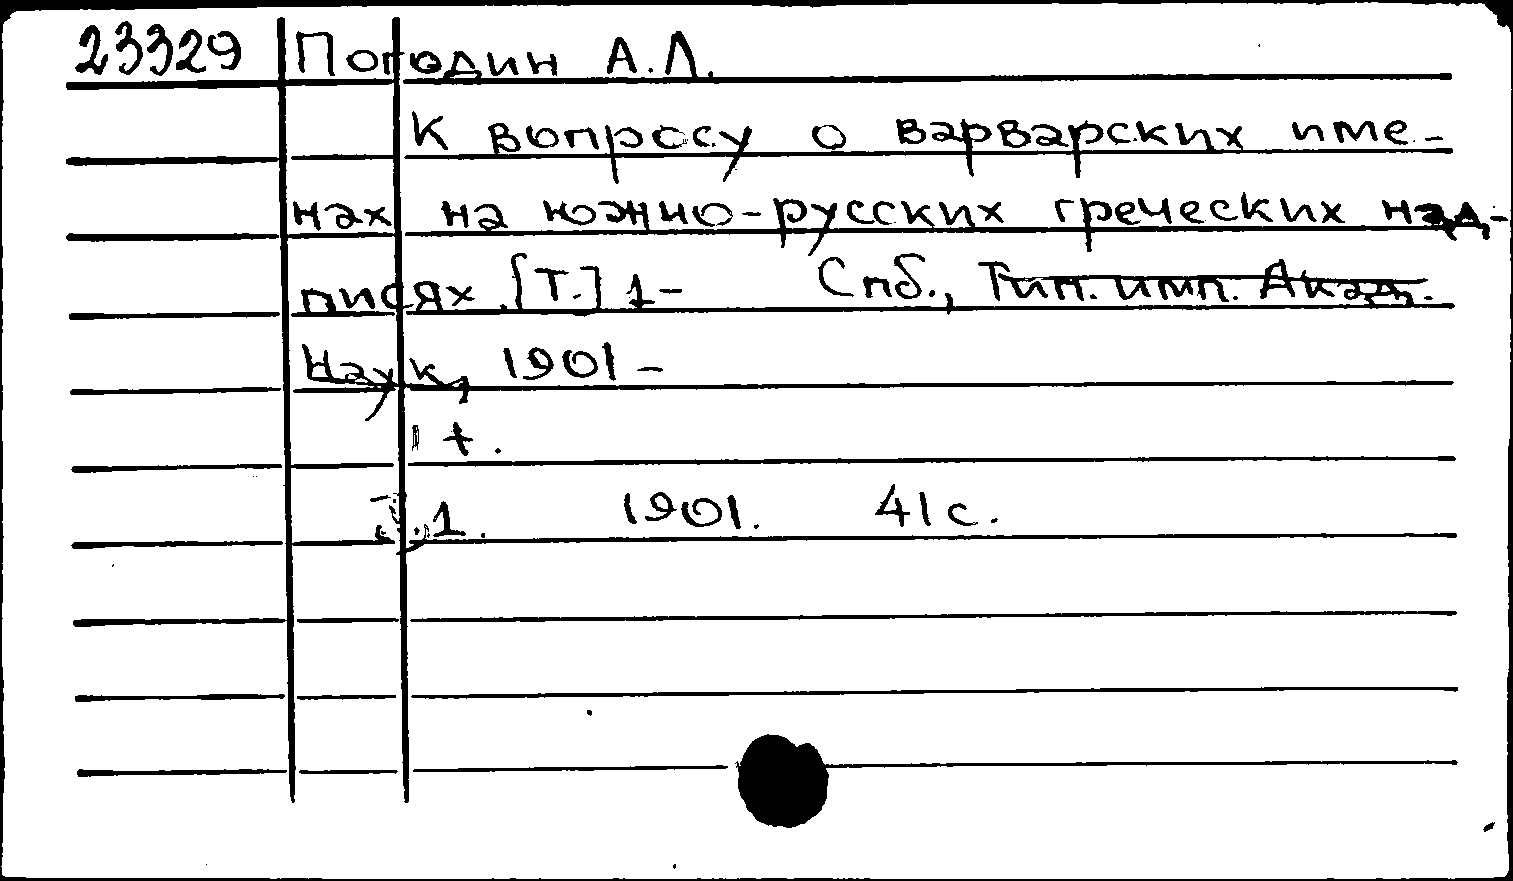 23329 Погодин А.Л.
К вопросу о варварских име-
нах на южно-русских греческих над-
писях. [Т.] 1- Спб., Тип. имп. Акад.
Наук, 1901-
1 т.
1. 1901. 41 с.